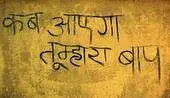 कब आएगा
तुम्हारा बाप